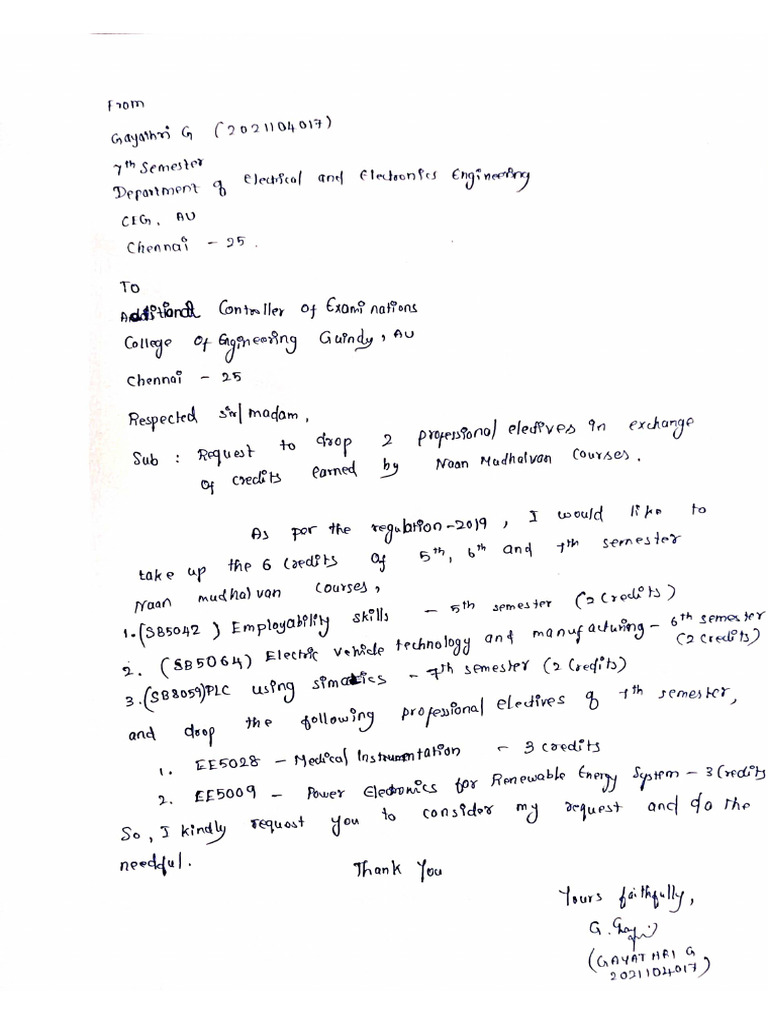 From
Gayathri G (2021104017)
7th Semester
Department of Electrical and Electronics Engineering
CEG, AU
Chennai - 25.
To
Additional Controller of Examinations
College of Egineering Guindy, AU
Chennai - 25
Respected sir/madam,
Sub : Request to drop 2 professional electives in exchange
of credits earned by Naan Mudhalvan Courses.
As per the regulation-2019, I would like to
take up the 6 credits of 5th, 6th and 7th semester
Naan mudhalvan courses,
1. (SB5042) Employability skills - 5th semester (2 credits)
2. (SB5064) Electric vehicle technology and manufacturing - 6th semester
(2 credits)
3. (SB8059) PLC using simatics - 7th semester (2 credits)
and drop the following professional electives of 7th semester,
1. EE5028 - Medical Instrumentation - 3 credits
2. EE5009 - Power Electronics for Renewable Energy System - 3 Credits
So, I kindly request you to consider my request and do the
needful.
Thank You
Yours faithfully,
G. Gayathri
(GAYATHRI G
2021104017)